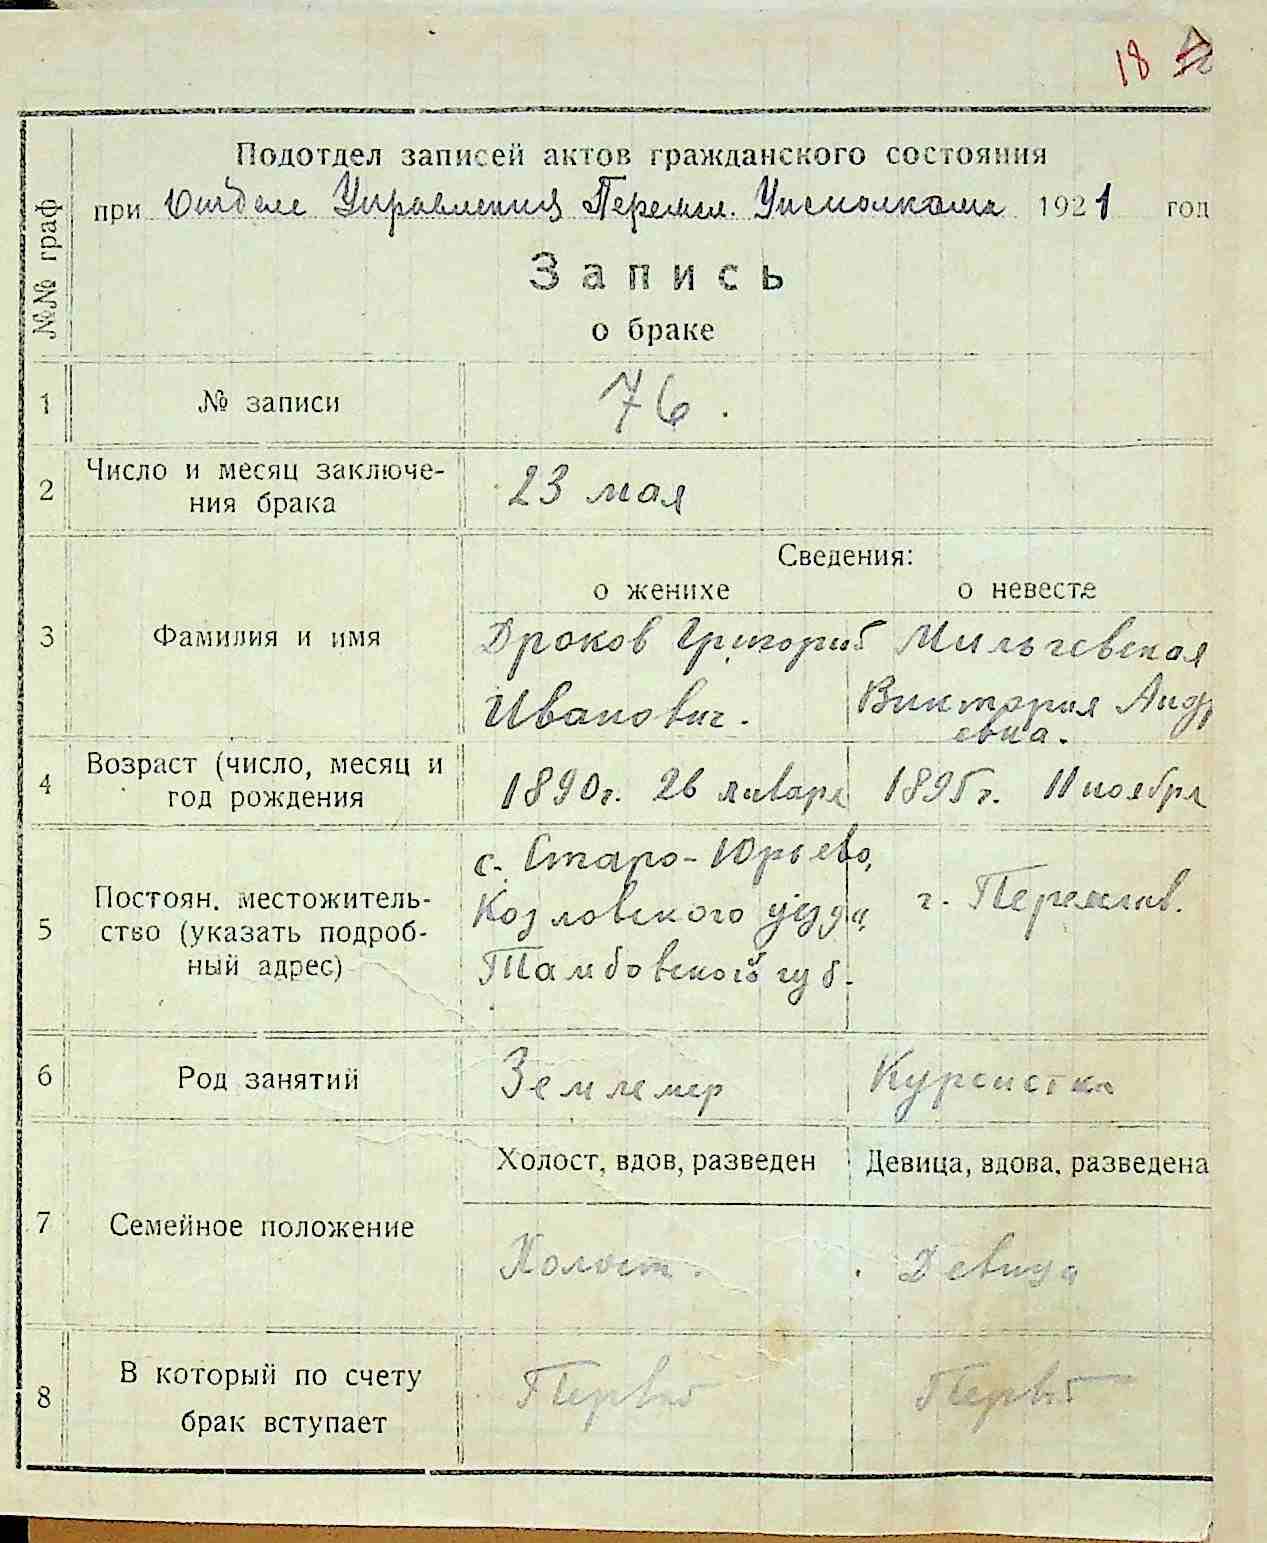 18
Подотдел записей актов гражданского состояния
при Отделе Управления Перемы. Уисполкома 1921 год
№№ граф
Запись
о браке
1 № записи 76.
2 Число и месяц заключе-
ния брака 23 мая
Сведения:
о женихе о невесте
3 Фамилия и имя Дроков Григорий Мильчевская
Иванович. Виктория Андр
евна.
4 Возраст (число, месяц и
год рождения 1890г. 26 января 1895г. 11 ноября
5 Постоян. местожитель-
ство (указать подроб-
ный адрес)
с. Старо-Юрьево,
Козловского уезда,
Тамбовской губ.
г. Перемышль.
6 Род занятий Землемер Курсистка
Холост, вдов, разведен Девица, вдова, разведена
7 Семейное положение Холост. Девица
8 В который по счету
брак вступает Первый Первый